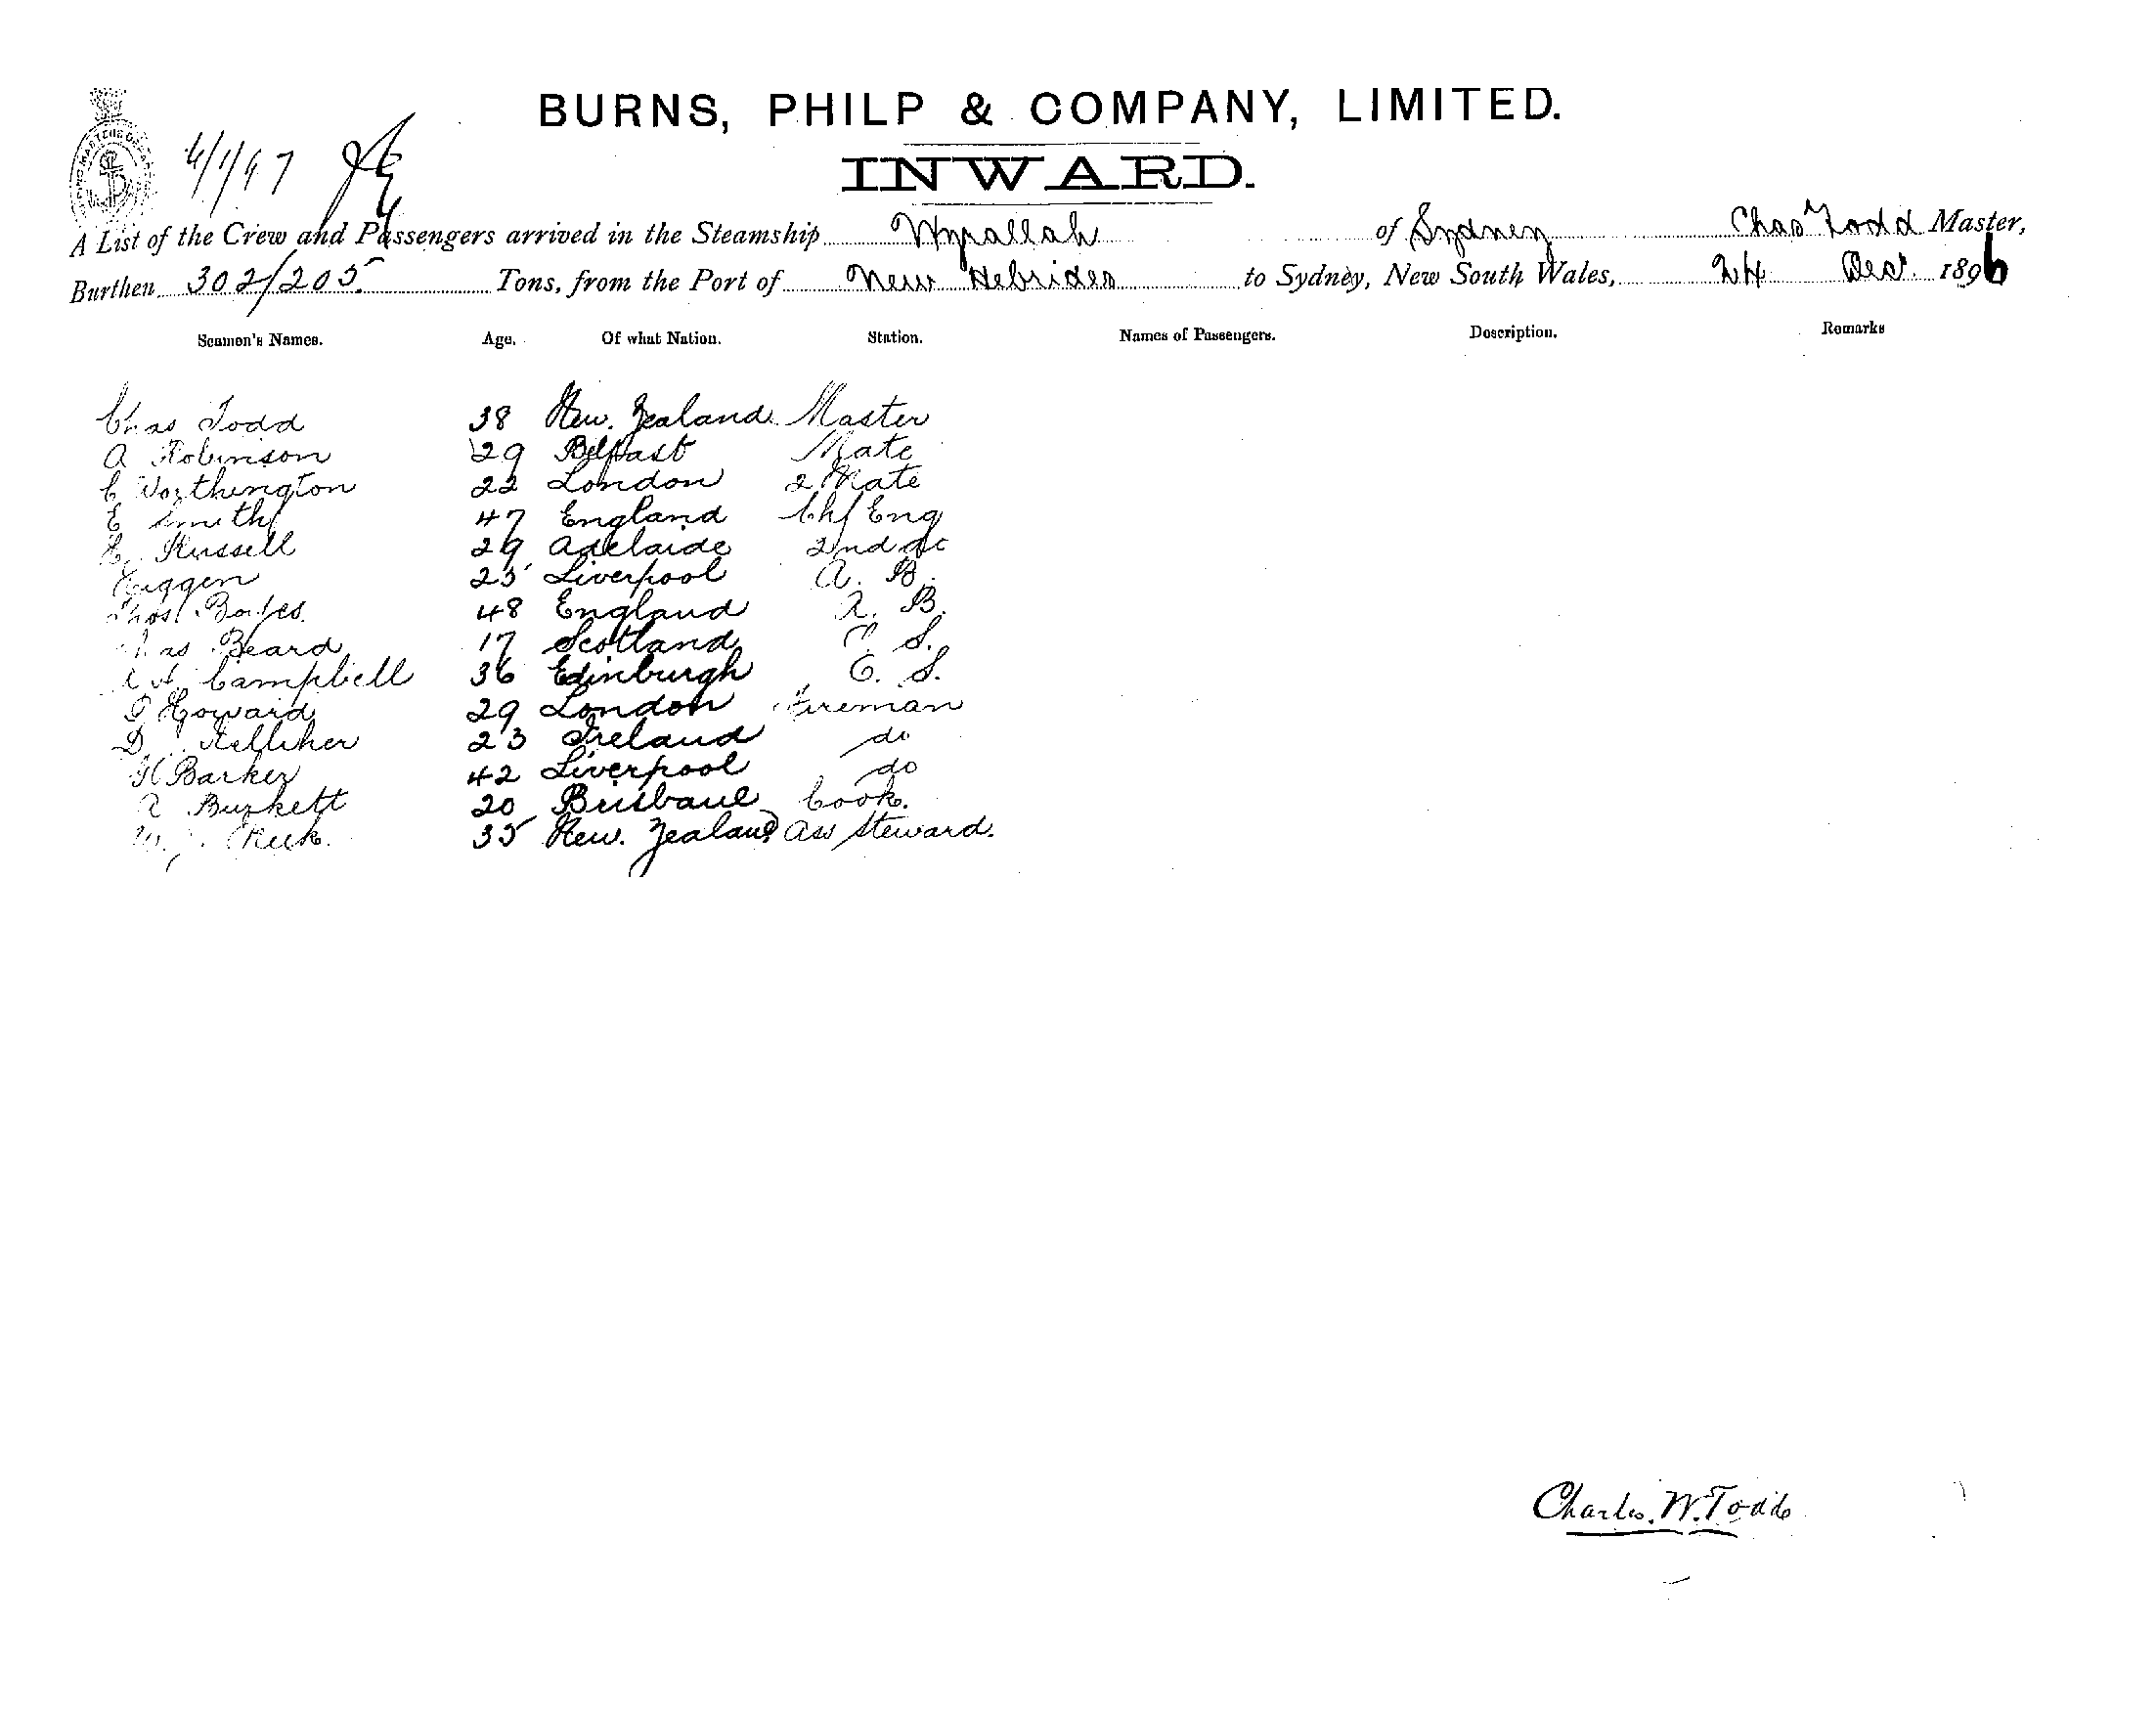 BURNS, PHILP & COMPANY, LIMITED.
4/1/97
INWARD.
A List of the Crew and Passengers arrived in the Steamship Wyrallah of Sydney Chas Todd Master,
Burthen 302/205 Tons, from the Port of New Hebrides to Sydney, New South Wales, 24 Decr. 1896
Seamen's Names. Age. Of what Nation. Station. Names of Passengers. Description. Remarks
Chas Todd 38 New. Zealand. Master
A Robinson 29 Belfast Mate
C Worthington 22 London 2 Mate
E Smith 47 England Chf Eng
Russell 29 Adelaide 2nd do
25 Liverpool A. B.
Thos 48 England A. B.
Chas Beard 17 Scotland O. S.
Campbell 36 Edinburgh O. S.
Howard 29 London Fireman
D Kelliher 23 Ireland do
H Barker 42 Liverpool do
A Burkett 20 Brisbane Cook.
W. 35 New. Zealand Ass Steward.
Charles. W. Todd